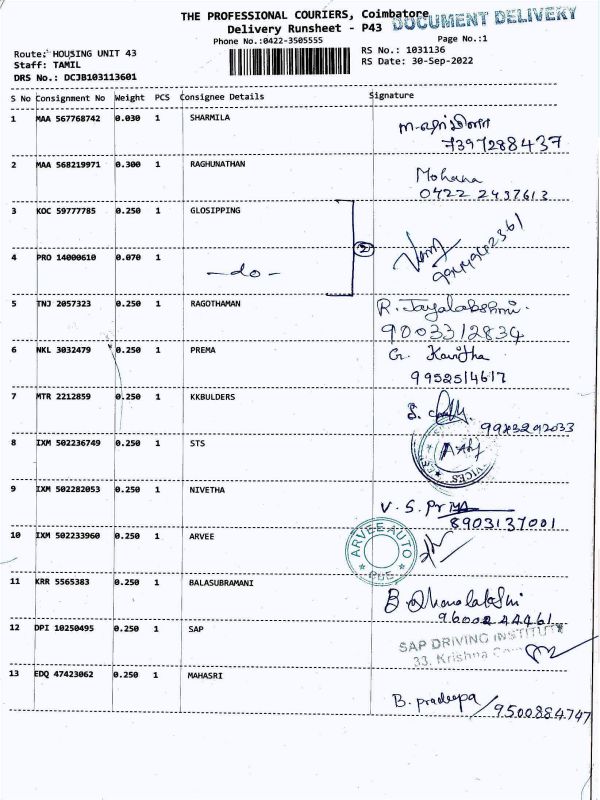 THE PROFESSIONAL COURIERS, Coimbatore
DOCUMENT DELIVERY
Delivery Runsheet - P43
Phone No.:0422-3505555
Page No.:1
Route: HOUSING UNIT 43
RS No.: 1031136
Staff: TAMIL
RS Date: 30-Sep-2022
DRS No.: DCJB103113601
S No Consignment No Weight PCS Consignee Details Signature
1 MAA 567768742 0.030 1 SHARMILA
7397288437
2 MAA 568219971 0.300 1 RAGHUNATHAN
Mohana
0422 2437613
3 KOC 59777785 0.250 1 GLOSIPPING
2
4 PRO 14000610 0.070 1
-do-
5 TNJ 2057323 0.250 1 RAGOTHAMAN
R. Jayalakshmi.
9003312834
6 NKL 3032479 0.250 1 PREMA
G. Kavitha
9952514617
7 MTR 2212859 0.250 1 KKBULDERS
8 IXM 502236749 0.250 1 STS
9 IXM 502282053 0.250 1 NIVETHA
V. S. Priya
8903137001
10 IXM 502233960 0.250 1 ARVEE
ARVEE AUTO
11 KRR 5565383 0.250 1 BALASUBRAMANI
B. Dhanalakshmi
9600244461
12 DPI 10250495 0.250 1 SAP
SAP DRIVING INSTITUTE
33, Krishna
13 EDQ 47423062 0.250 1 MAHASRI
B. pradeepa / 9500884747